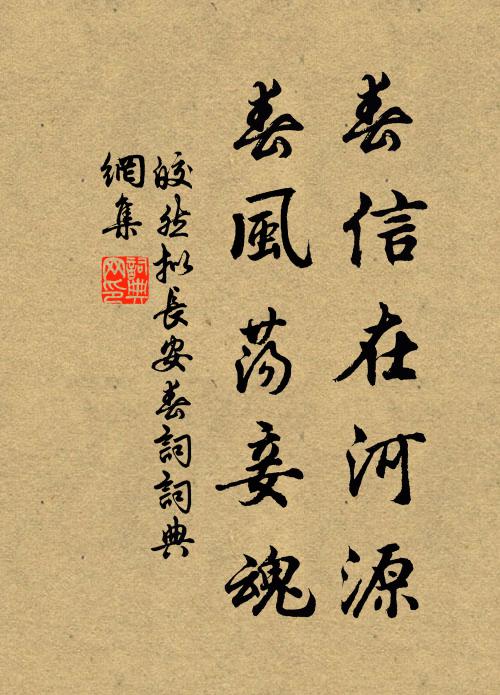 春信在河源
春風荡妾魂
皎然拟長安春詞詞典
網集
詞典
网印